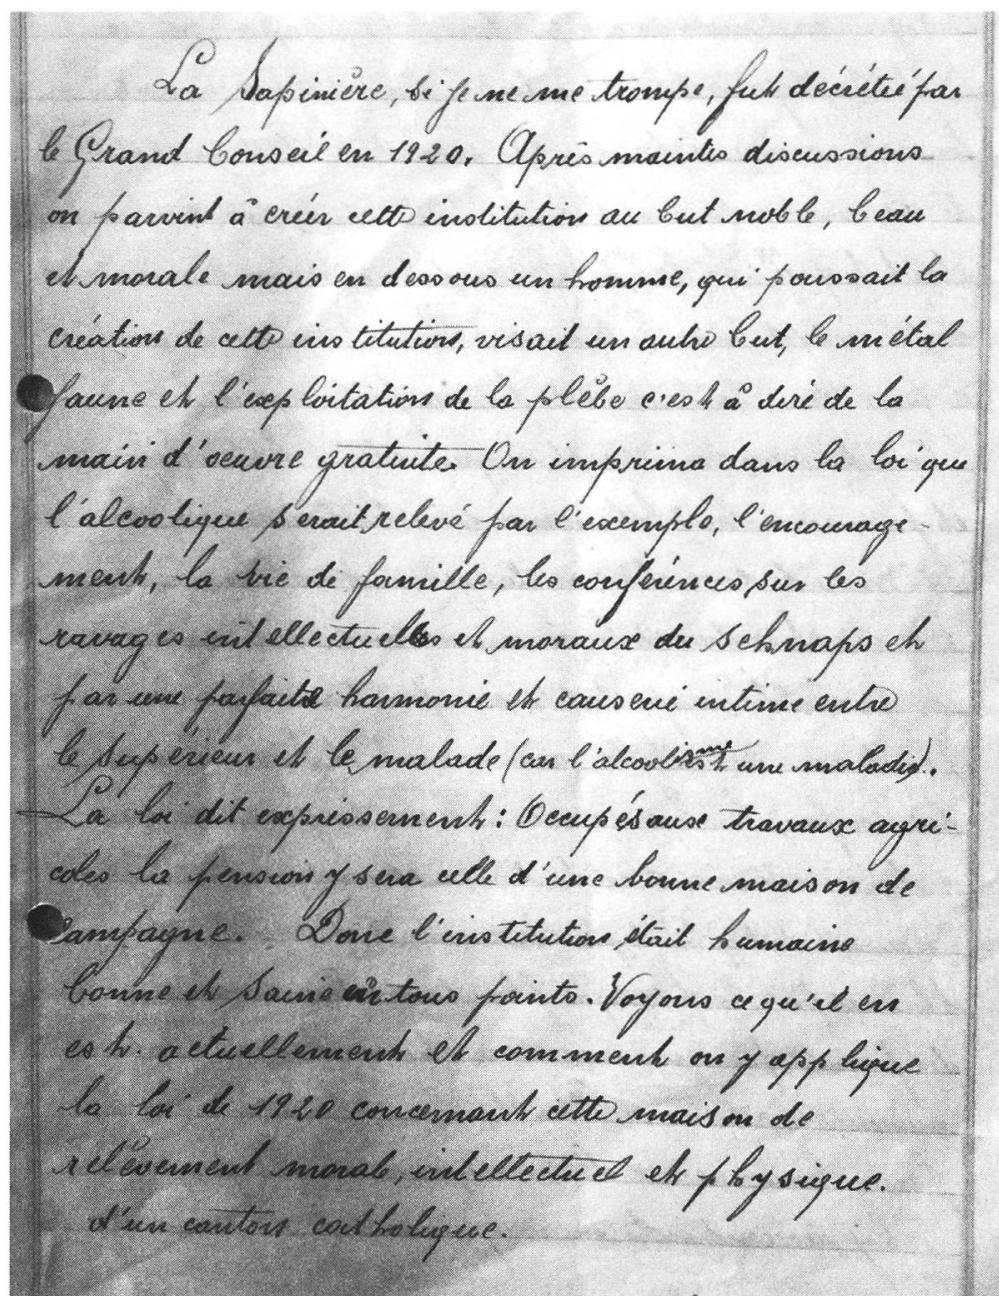 La Sapinière, si je ne me trompe, fut décrétié par
le Grand Conseil en 1920. Après maintes discussions
on parvint à créér cette institution au but noble, beau
et morale mais en dessous un homme, qui poussait la
création de cette institution, visait un autre but, le métal
jaune et l'exploitation de la plèbe c'est à diré de la
main d'oeuvre gratuite. On imprima dans la loi que
l'alcoolique serait relevé par l'exemple, l'encourage-
ment, la vie de famille, les conférences sur les
ravages intellectuels et moraux du schnaps et
par une parfaite harmonie et causerie intime entre
le supérieur et le malade (car l'alcoolisme est une maladie).
La loi dit expressement: Occupés aux travaux agri-
coles la pension y sera celle d'une bonne maison de
Campagne. Donc l'institution était humaine
bonne et saine en tous points. Voyons ce qu'il en
est. actuellement et comment on y applique
la loi de 1920 concernant cette maison de
relèvement moral, intellectuel et physique.
d'un canton catholique.